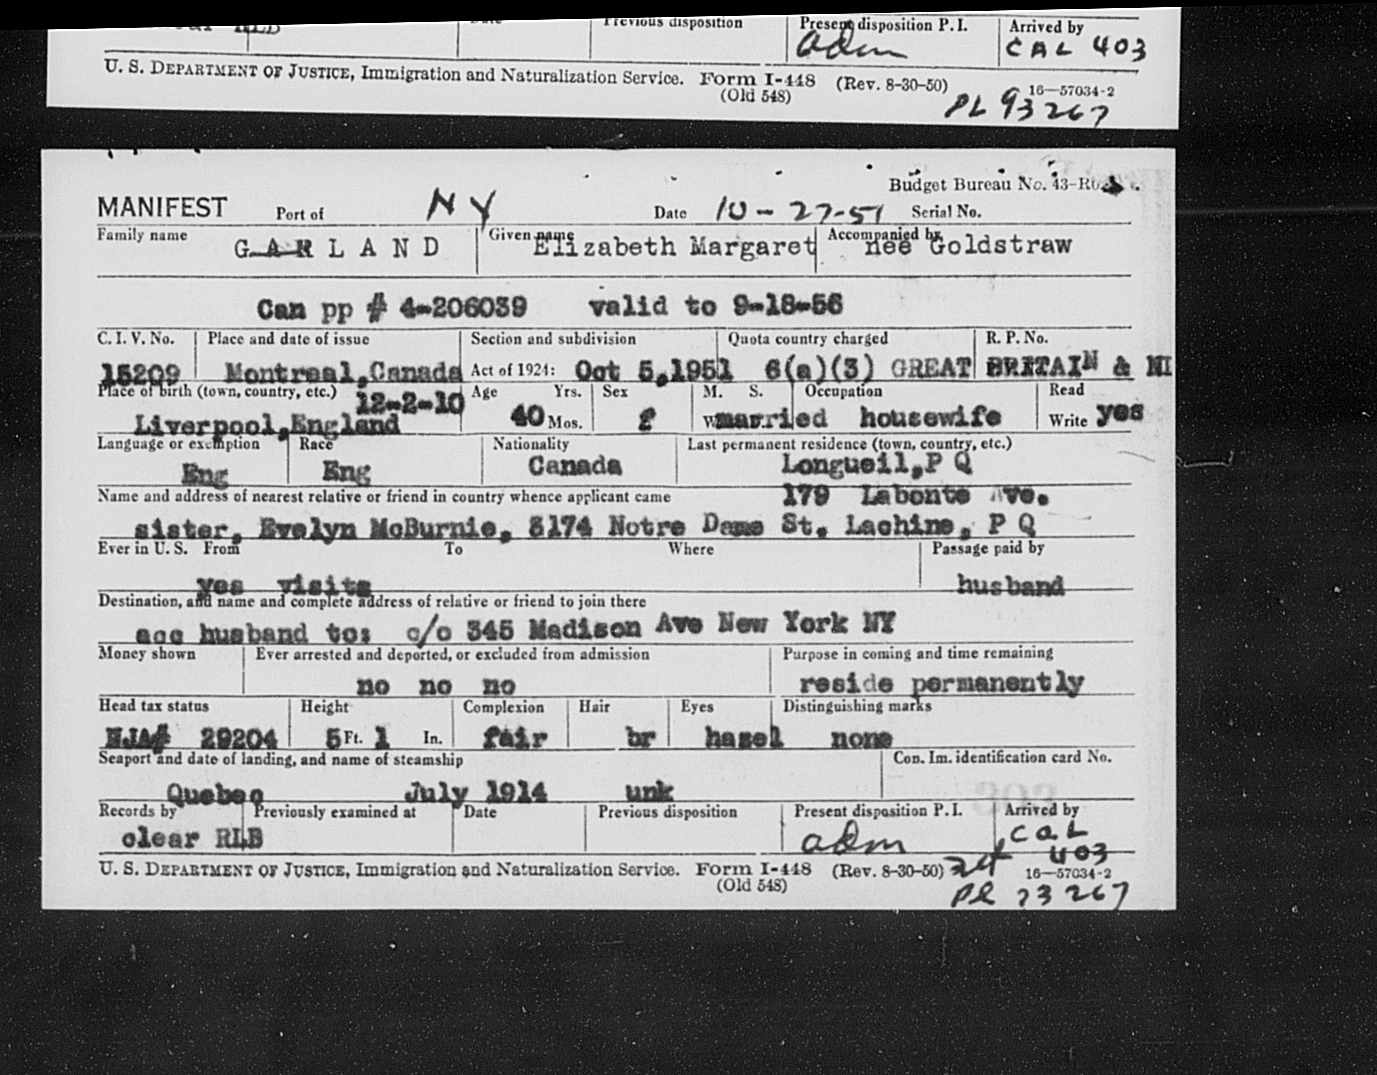 Previous disposition Present disposition P. I. Arrived by
adm CAL 403
U. S. DEPARTMENT OF JUSTICE, Immigration and Naturalization Service. Form I-448 (Rev. 8-30-50) 16—57034-2
(Old 548)
PL 93267
Budget Bureau No. 43-R
MANIFEST Port of NY Date 10-27-51 Serial No.
Family name GARLAND Given name Elizabeth Margaret Accompanied by nee Goldstraw
Can pp # 4-206039 valid to 9-18-56
C. I. V. No. Place and date of issue Section and subdivision Quota country charged R. P. No.
15209 Montreal,Canada Act of 1924: Oct 5,1951 6(a)(3) GREAT BRITAIN & NI
Place of birth (town, country, etc.) Age Yrs. Sex M. S. Occupation Read
12-2-10
Liverpool,England 40 Mos. f married housewife Write yes
Language or exemption Race Nationality Last permanent residence (town, country, etc.)
Eng Eng Canada Longueil,P Q
Name and address of nearest relative or friend in country whence applicant came 179 Labonte Ave.
sister, Evelyn McBurnie, 3174 Notre Dame St. Lachine, P Q
Ever in U. S. From To Where Passage paid by
yes visits husband
Destination, and name and complete address of relative or friend to join there
acc husband to: c/o 345 Madison Ave New York NY
Money shown Ever arrested and deported, or excluded from admission Purpose in coming and time remaining
no no no reside permanently
Head tax status Height Complexion Hair Eyes Distinguishing marks
NJA# 29204 5 Ft. 1 In. fair br hazel none
Seaport and date of landing, and name of steamship Con. Im. identification card No.
Quebec July 1914 unk
Records by Previously examined at Date Previous disposition Present disposition P. I. Arrived by
clear RLB adm CAL
403
U. S. DEPARTMENT OF JUSTICE, Immigration and Naturalization Service. Form I-448 (Rev. 8-30-50) 16—57034-2
(Old 548)